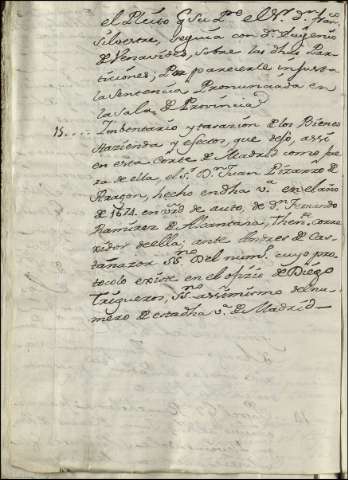 el Pleito q̃ Su P.re el S.r D.n Fran.co
Silvestre, seguia con D.n Eugenio
de Venavides, sobre las dhas Par-
ticiones; Por parecerle injusta
la Sentencia Pronunciada en
la Sala de Provincia
15.... Imbentario y tasazion de los Bienes
Hazienda y efectos, que dejó, assi
en esta Corte de Madrid como fue-
ra de ella, el S. D. Juan Pizarro de
Aragon, hecho en dha v.a en el año
de 1674. en v.rd de auto, de D.n Fernando
Ramirez de Alcantara, Then.te corre-
xidor de ella; ante Andres de Cas-
tañazor SS.no del num.o cuyo pro-
tocolo existe en el ofizio de Diego
Trigueros, SS.no assimismo del nu-
mero de esta dha v.a de Madrid